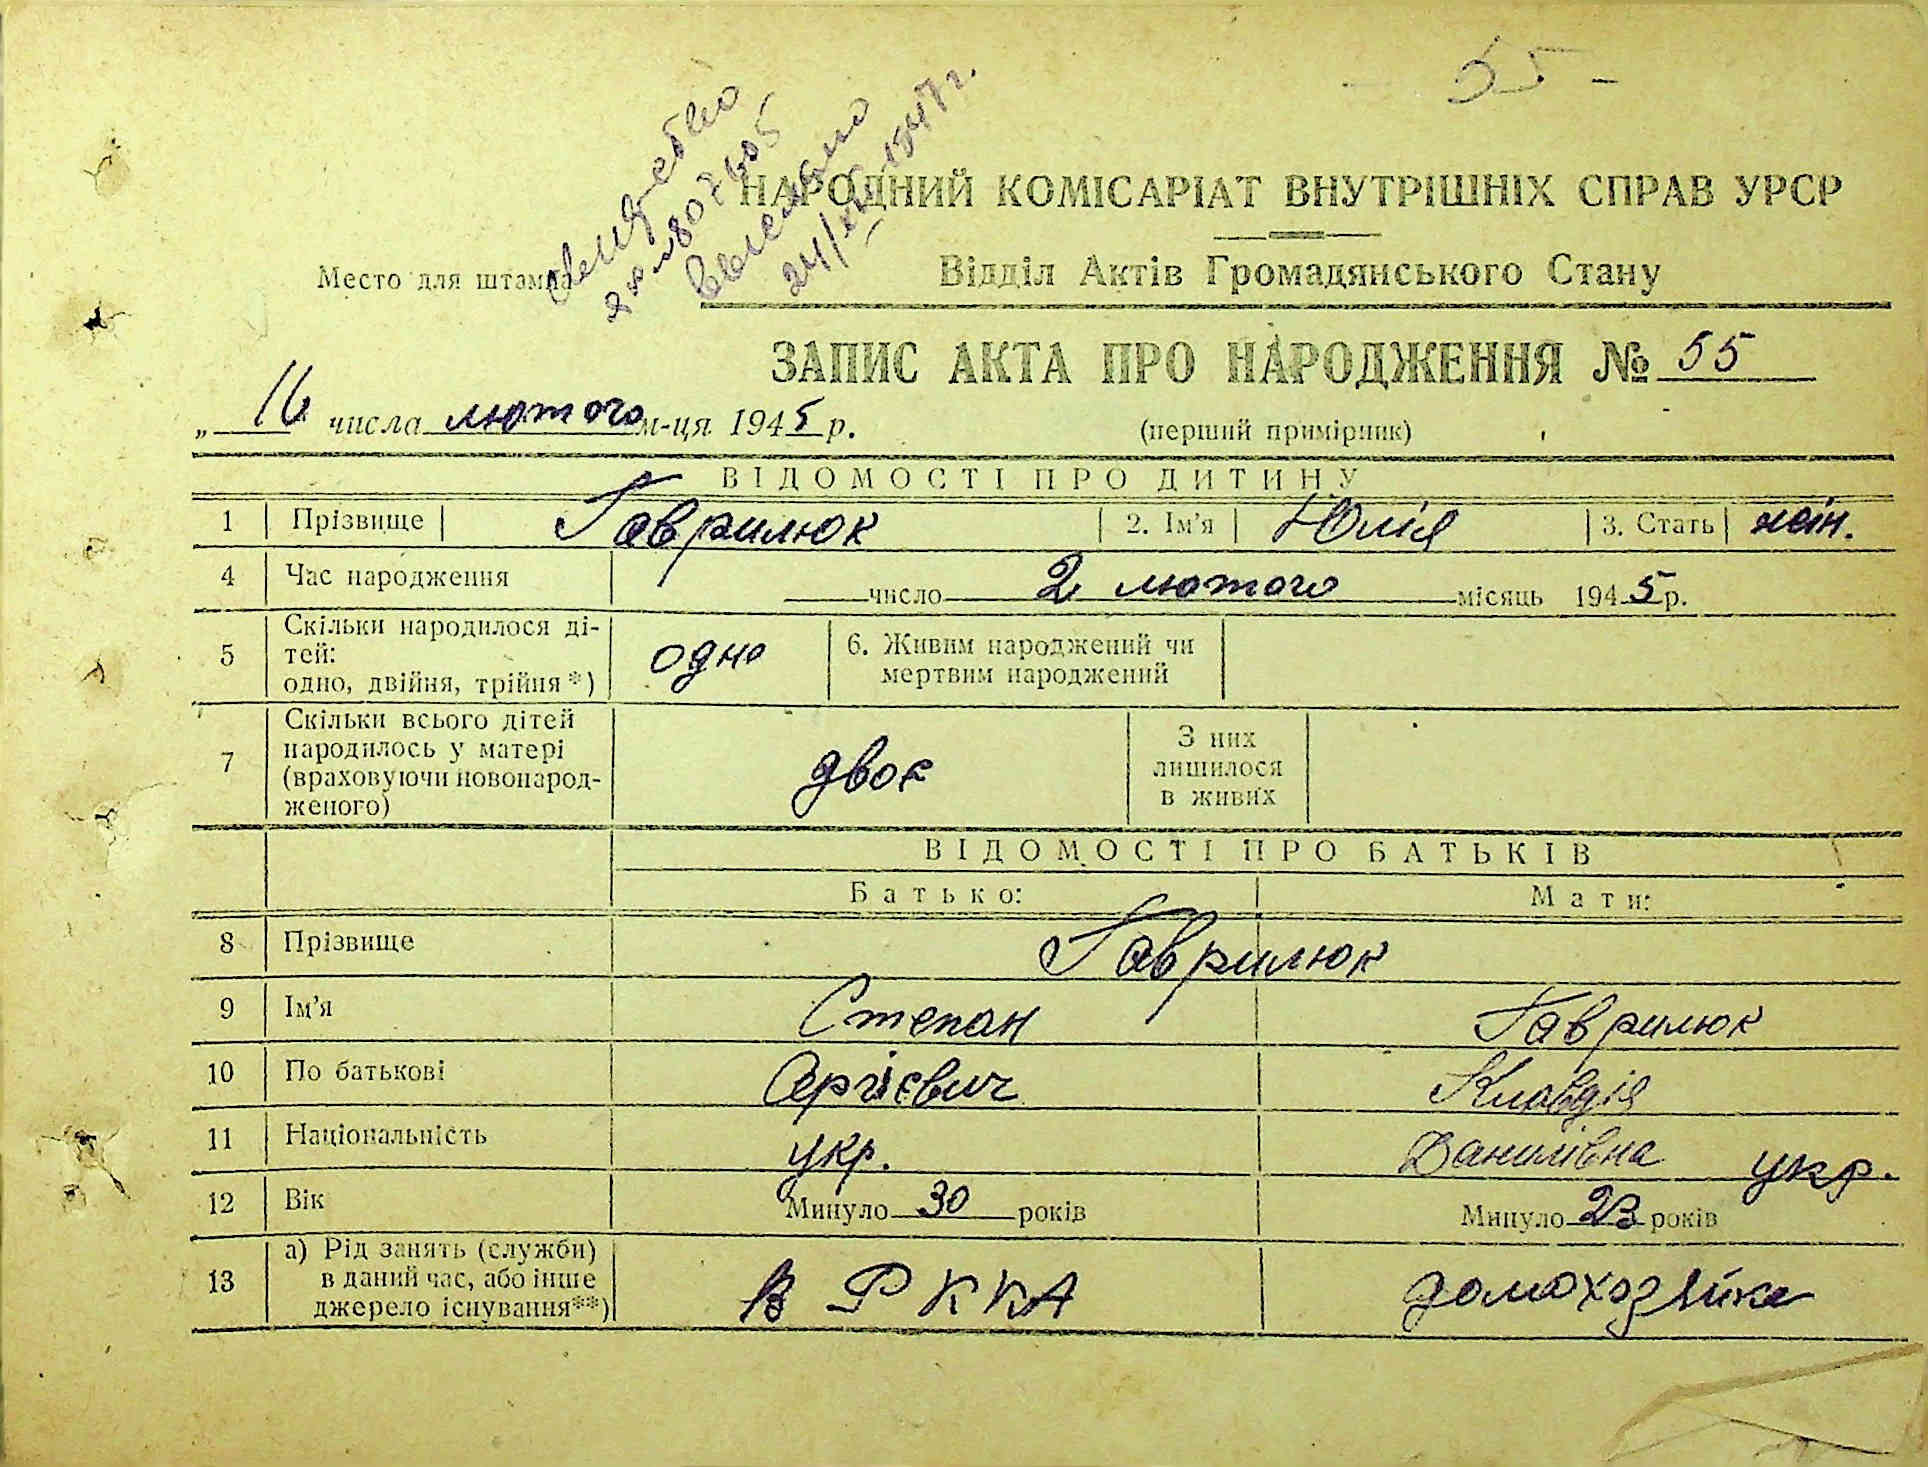 - 55 -
свидетельство
выслано
НАРОДНИЙ КОМІСАРІАТ ВНУТРІШНІХ СПРАВ УРСР
Место для штампа
Відділ Актів Громадянського Стану
ЗАПИС АКТА ПРО НАРОДЖЕННЯ № 55
„ 16 числа лютого м-ця 1945 р.
(перший примірник)
ВІДОМОСТІ ПРО ДИТИНУ
1 Прізвище Гаврилюк 2. Ім'я Юлія 3. Стать жін.
4 Час народження число 2 лютого місяць 1945 р.
5 Скільки народилося ді-
тей:
одно, двійня, трійня*) одно 6. Живим народжений чи
мертвим народжений
7 Скільки всього дітей
народилось у матері
(враховуючи новонарод-
женого) двоє З них
лишилося
в живих
ВІДОМОСТІ ПРО БАТЬКІВ
Батько: Мати:
8 Прізвище Гаврилюк
9 Ім'я Степан Гаврилюк
10 По батькові Сергієвич Клавдія
11 Національність укр. Данилівна укр.
12 Вік Минуло 30 років Минуло 23 років
13 а) Рід занять (служби)
в даний час, або інше
джерело існування**) В РККА домохозяйка